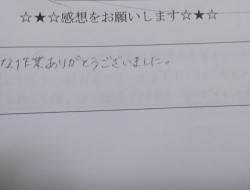 ☆★☆感想をお願いします☆★☆
な作業ありがとうございました。